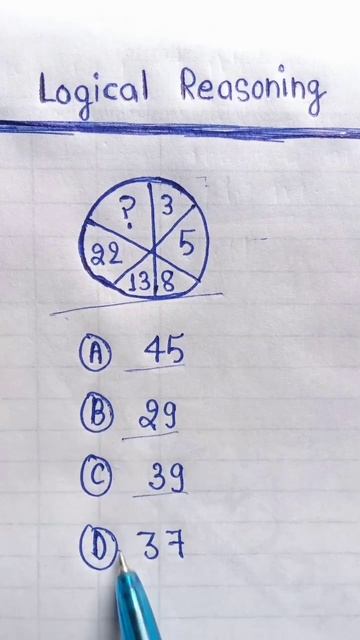 Logical Reasoning
? 3
22 5
13 8
A 45
B 29
C 39
D 37